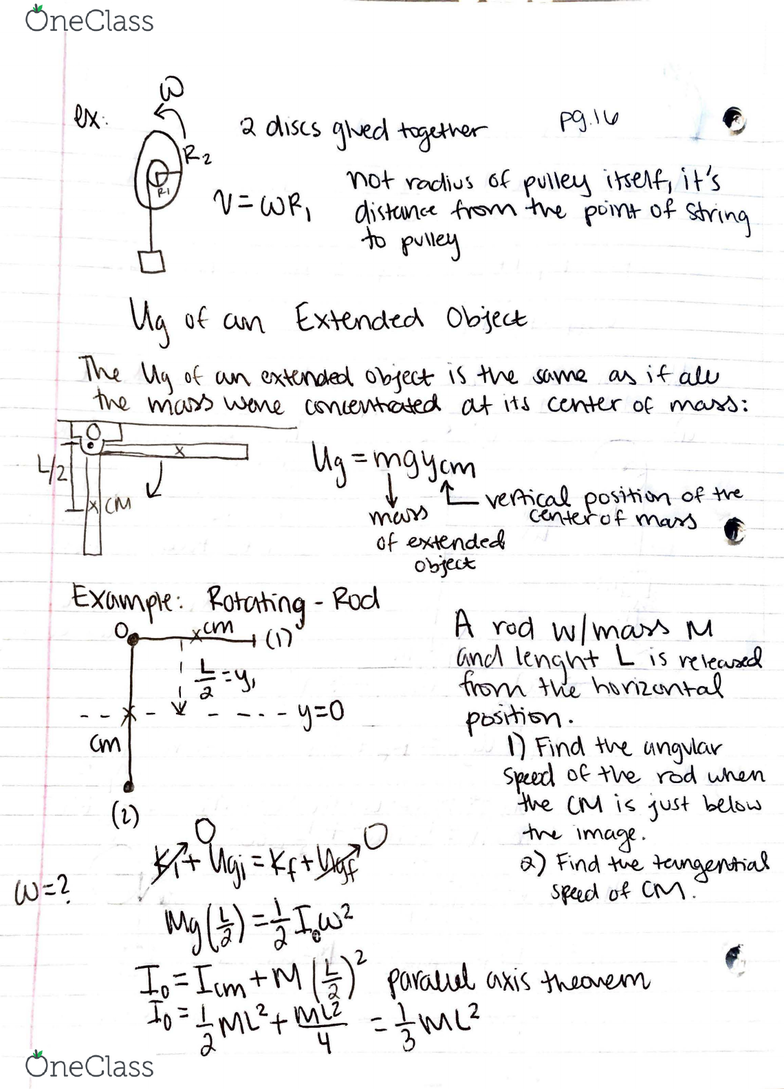 OneClass
ex:
ω
R₂
R₁
2 discs glued together
pg.16
V=ωR₁
not radius of pulley itself, it's
distance from the point of string
to pulley
Ug of an Extended Object
The Ug of an extended object is the same as if all
the mass were concentrated at its center of mass:
L/2
x
x CM
Ug = mgycm
mass
of extended
object
vertical position of the
center of mass
Example: Rotating - Rod
O
xcm
(1)
L/2 = y₁
y=0
cm
(2)
A rod w/mass M
and lenght L is released
from the horizontal
position.
1) Find the angular
speed of the rod when
the CM is just below
the image.
2) Find the tangential
speed of CM.
ω=?
0
0
Ki + Ugi = Kf + Ugf
Mg(L/2) = 1/2 I₀ω²
I₀ = Icm + M(L/2)² parallel axis theorem
I₀ = 1/2 ML² + ML²/4 = 1/3 ML²
OneClass